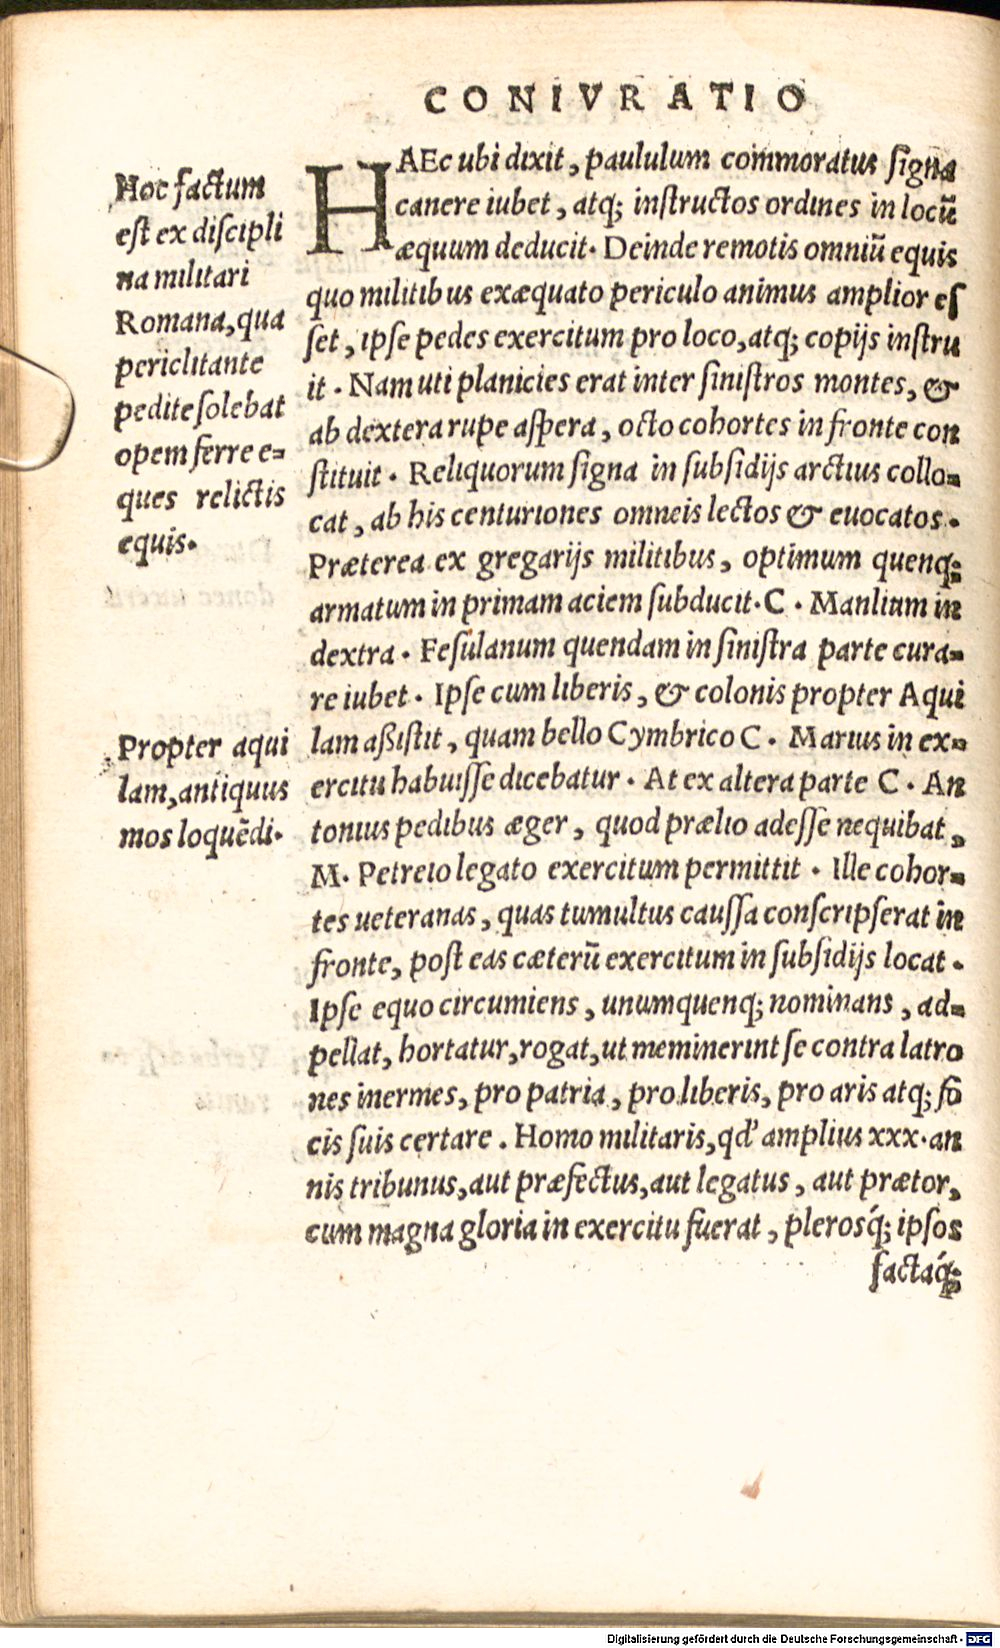 CONIVRATIO
HAEc ubi dixit, paululum commoratus ſigna
canere iubet, atq; inſtructos ordines in locū
æquum deducit. Deinde remotis omniū equis
quo militibus exæquato periculo animus amplior eſ
ſet, ipſe pedes exercitum pro loco, atq; copijs inſtru
it. Nam uti planicies erat inter ſiniſtros montes, &
ab dextera rupe aſpera, octo cohortes in fronte con
ſtituit. Reliquorum ſigna in ſubſidijs arctius collo-
cat, ab his centuriones omneis lectos & euocatos.
Præterea ex gregarijs militibus, optimum quenq;
armatum in primam aciem ſubducit. C. Manlium in
dextra. Feſulanum quendam in ſiniſtra parte cura-
re iubet. Ipſe cum liberis, & colonis propter Aqui
lam aßiſtit, quam bello Cymbrico C. Marius in ex-
ercitu habuiſſe dicebatur. At ex altera parte C. An
tonius pedibus æger, quod prælio adeſſe nequibat,
M. Petreio legato exercitum permittit. Ille cohor-
tes ueteranas, quas tumultus cauſſa conſcripſerat in
fronte, poſt eas cæterū exercitum in ſubſidijs locat.
Ipſe equo circumiens, unumquenq; nominans, ad-
pellat, hortatur, rogat, ut meminerint ſe contra latro
nes inermes, pro patria, pro liberis, pro aris atq; fo
cis ſuis certare. Homo militaris, qd' amplius xxx. an
nis tribunus, aut præfectus, aut legatus, aut prætor,
cum magna gloria in exercitu fuerat, pleroſq́; ipſos
factaq́;
Hoc factum
eſt ex diſcipli
na militari
Romana, qua
periclitante
pedite ſolebat
opem ferre e-
ques relictis
equis.
Propter aqui
lam, antiquus
mos loquēdi.
Digitalisierung gefördert durch die Deutsche Forschungsgemeinschaft - DFG